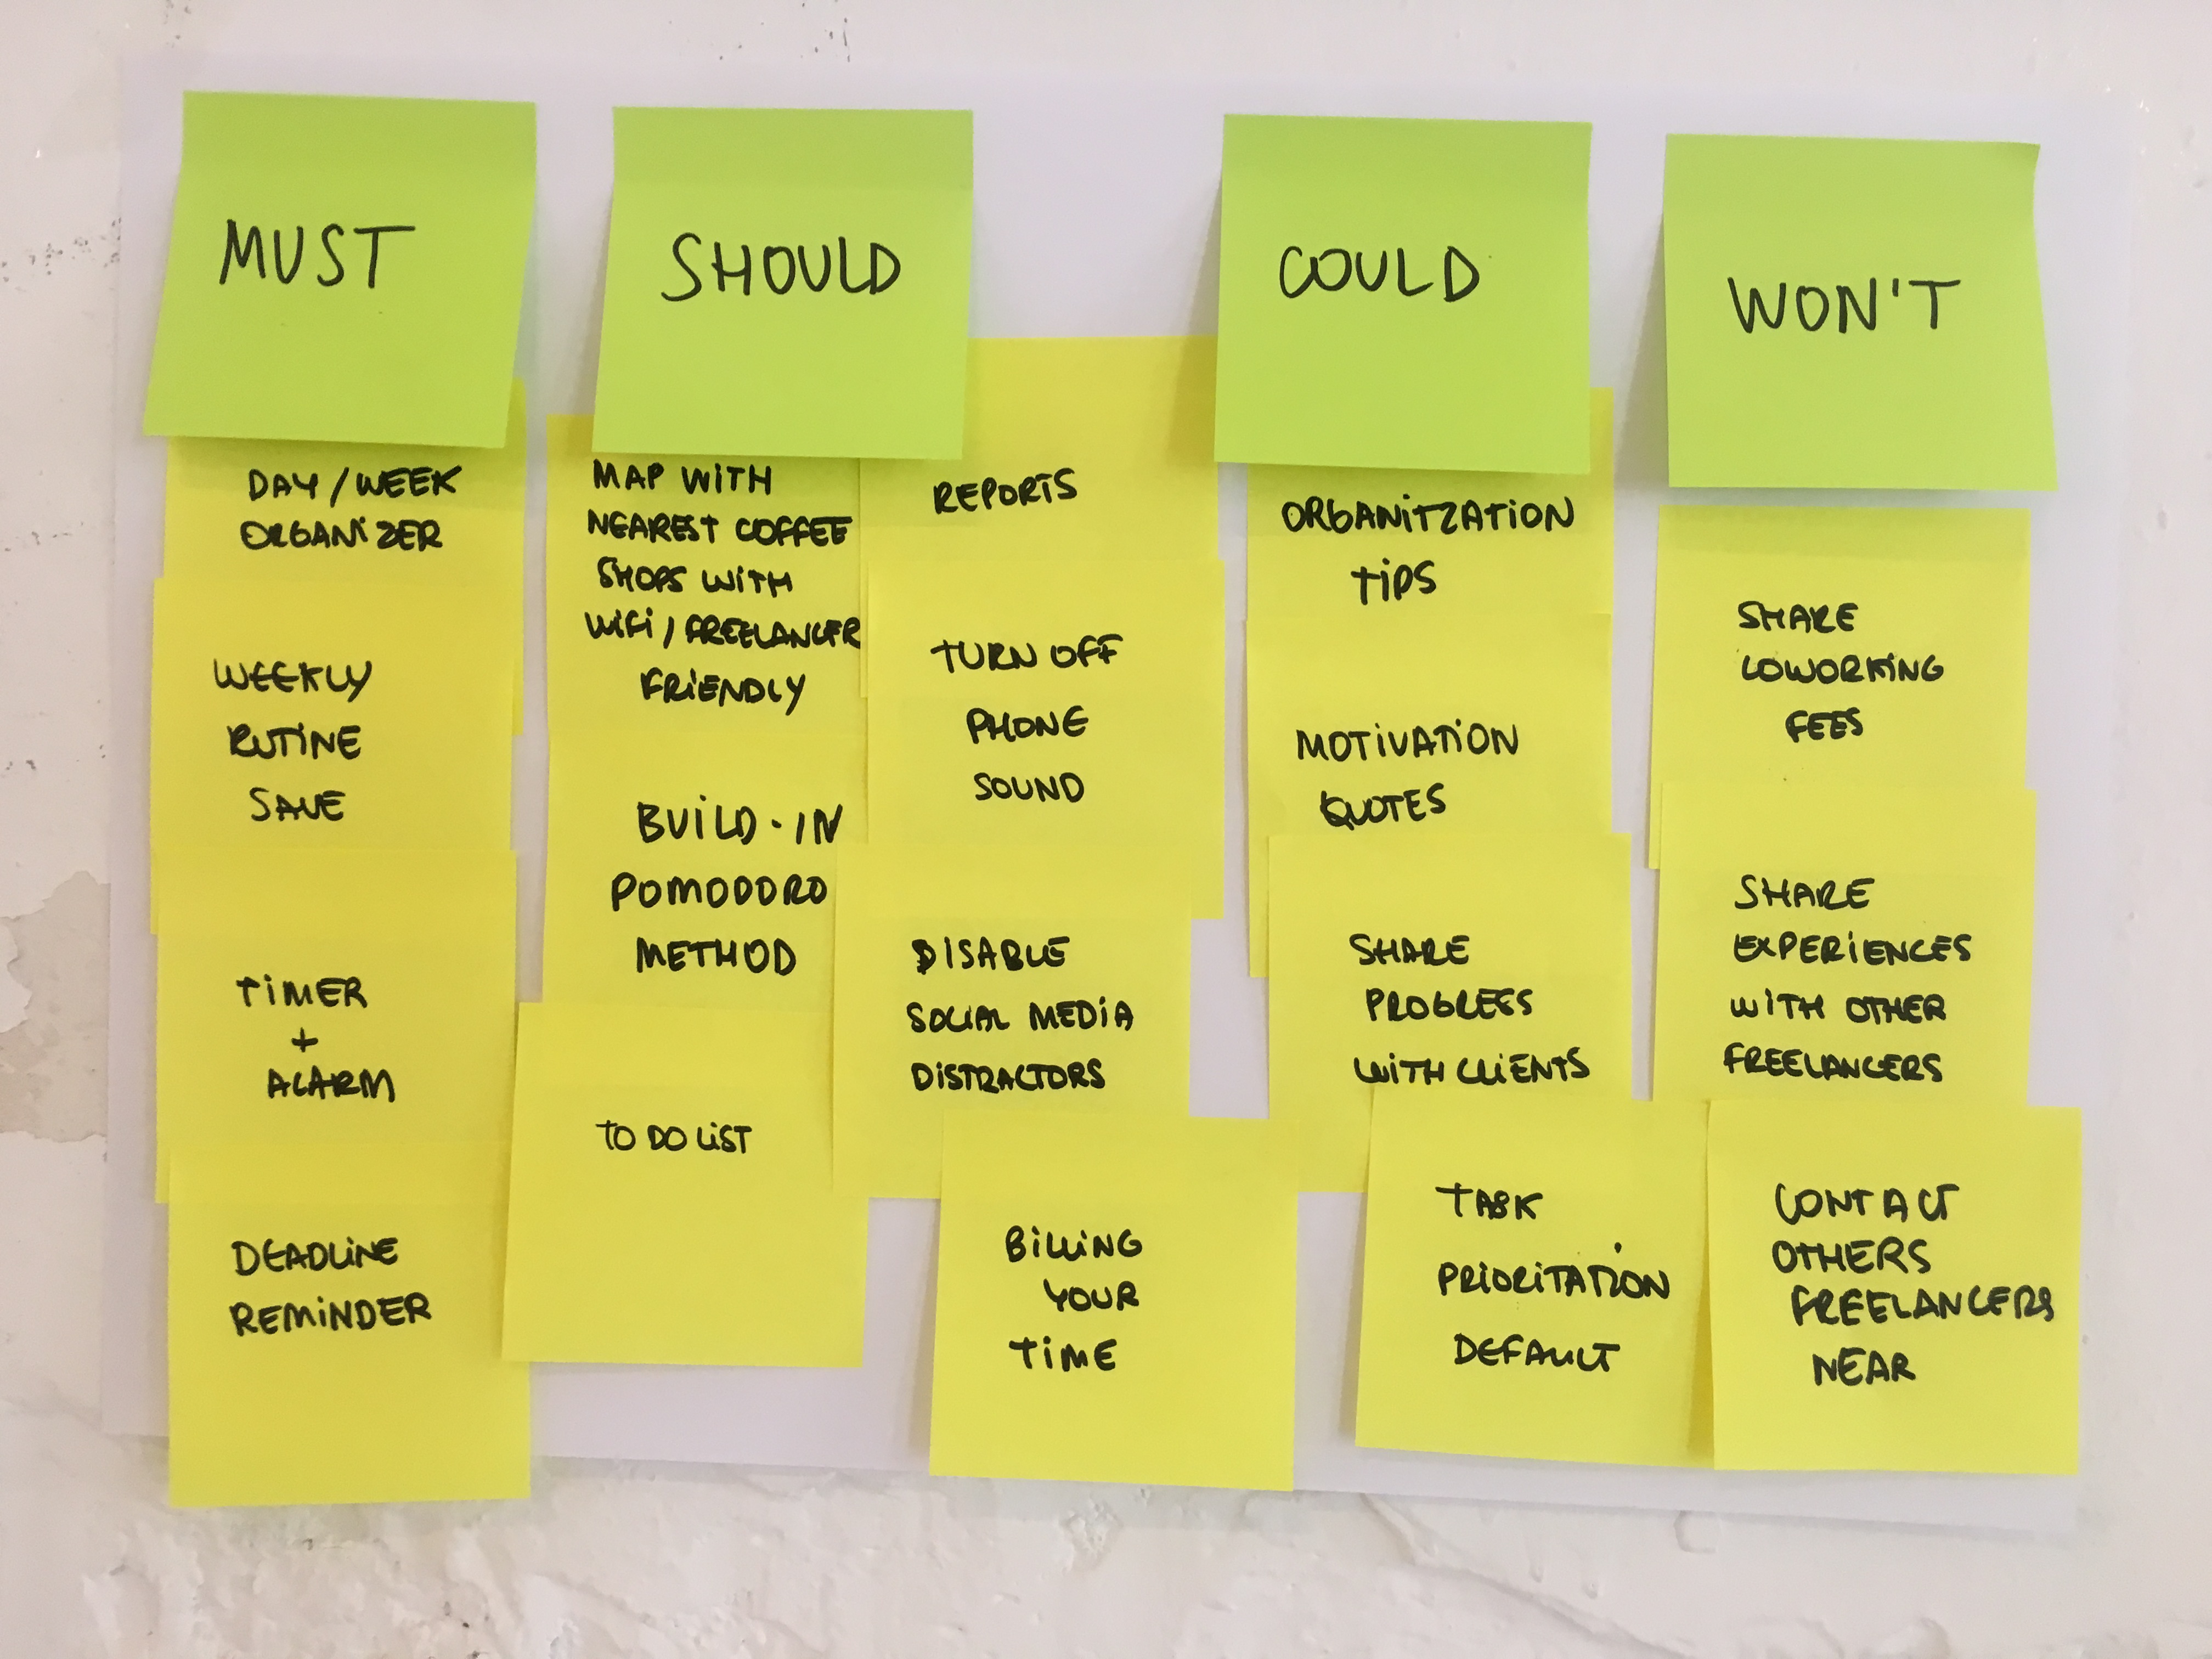 MUST
DAY / WEEK
ORGANIZER
WEEKLY
RUTINE
SAVE
TIMER
+
ALARM
DEADLINE
REMINDER
SHOULD
MAP WITH
NEAREST COFFEE
SHOPS WITH
WIFI / FREELANCER
FRIENDLY
BUILD-IN
POMODORO
METHOD
TO DO LIST
REPORTS
TURN OFF
PHONE
SOUND
DISABLE
SOCIAL MEDIA
DISTRACTORS
BILLING
YOUR
TIME
COULD
ORGANITZATION
TIPS
MOTIVATION
QUOTES
SHARE
PROGRESS
WITH CLIENTS
TASK
PRIORITATION
DEFAULT
WON'T
SHARE
COWORKING
FEES
SHARE
EXPERIENCES
WITH OTHER
FREELANCERS
CONTACT
OTHERS
FREELANCERS
NEAR